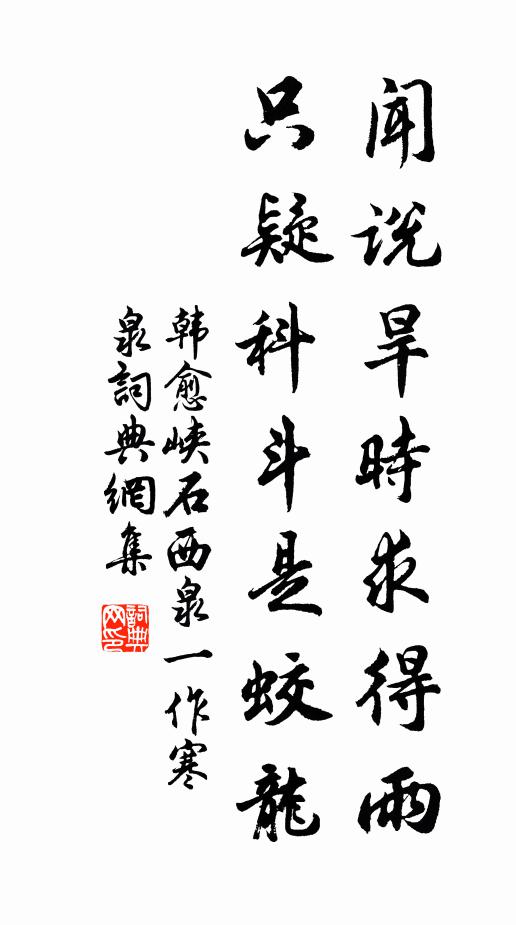 聞説旱時求得雨
只疑科斗是蛟龍
韩愈峽石西泉一作寒
泉詞典網集
詞典
网印